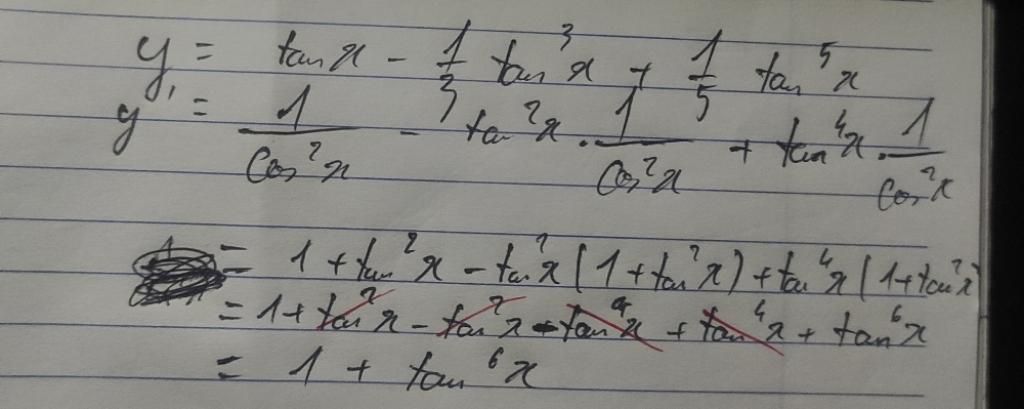 y = tan x - 1/3 tan³x + 1/5 tan⁵x
y' = 1/cos²x - tan²x · 1/cos²x + tan⁴x · 1/cos²x
= 1 + tan²x - tan²x (1 + tan²x) + tan⁴x (1 + tan²x)
= 1 + tan²x - tan²x - tan⁴x + tan⁴x + tan⁶x
= 1 + tan⁶x